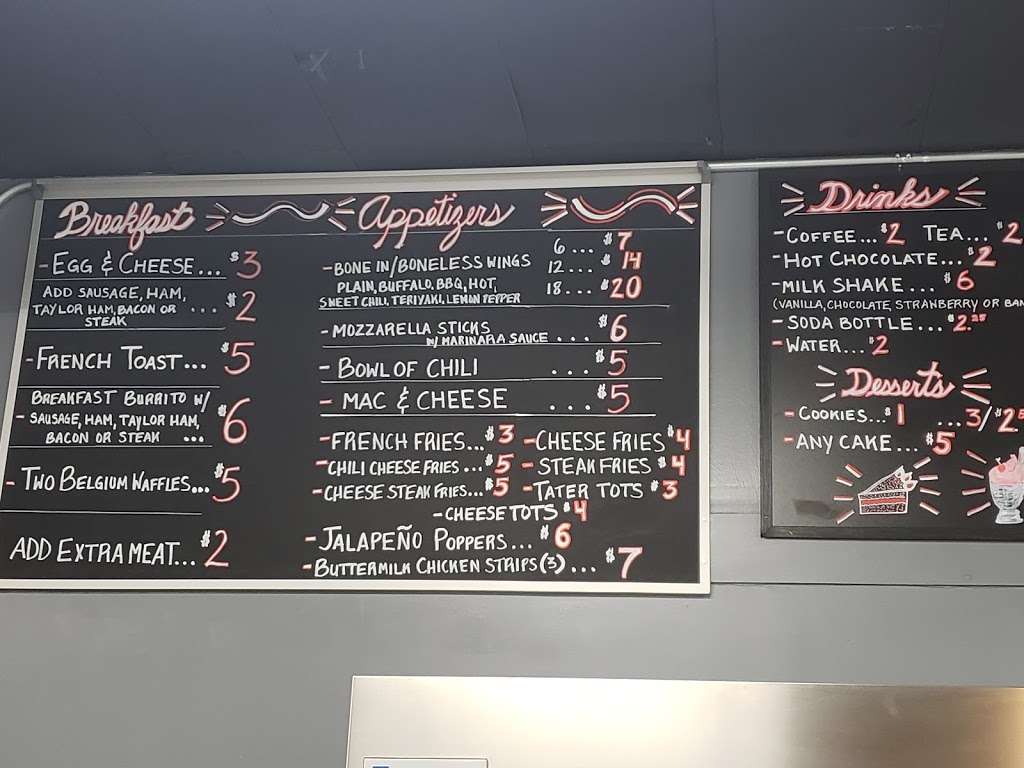 Breakfast
- EGG & CHEESE... $3
ADD SAUSAGE, HAM,
TAYLOR HAM, BACON OR ... $2
STEAK
- FRENCH TOAST... $5
BREAKFAST BURRITO W/
- SAUSAGE, HAM, TAYLOR HAM, $6
BACON OR STEAK ...
- TWO BELGIUM WAFFLES... $5
ADD EXTRA MEAT... $2
Appetizers
6... $7
- BONE IN/BONELESS WINGS 12... $14
PLAIN, BUFFALO, BBQ, HOT, 18... $20
SWEET CHILI, TERIYAKI, LEMON PEPPER
- MOZZARELLA STICKS $6
W/ MARINARA SAUCE ...
- BOWL OF CHILI ... $5
- MAC & CHEESE ... $5
- FRENCH FRIES... $3 - CHEESE FRIES $4
- CHILI CHEESE FRIES... $5 - STEAK FRIES $4
- CHEESE STEAK FRIES... $5 - TATER TOTS $3
- CHEESE TOTS $4
- JALAPEÑO POPPERS... $6
- BUTTERMILK CHICKEN STRIPS (3)... $7
Drinks
- COFFEE... $2 TEA... $2
- HOT CHOCOLATE... $2
- MILK SHAKE... $6
(VANILLA, CHOCOLATE, STRAWBERRY OR
- SODA BOTTLE... $2.25
- WATER... $2
Desserts
- COOKIES... $1 ...3/$2.
- ANY CAKE... $5